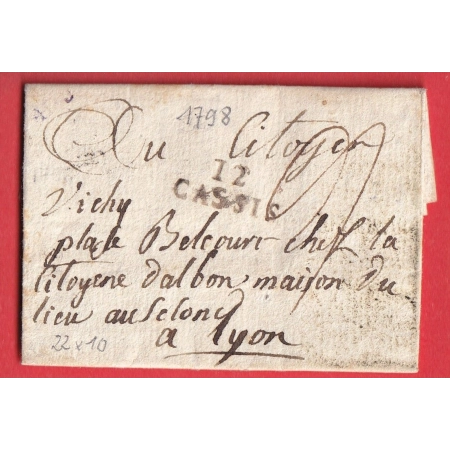 1798
Au Citoyen
12
CASSIS
Vichy
place Belcourt chez la
Citoyene dalbon maison du
lieu au Selond
a lyon
22 x 10